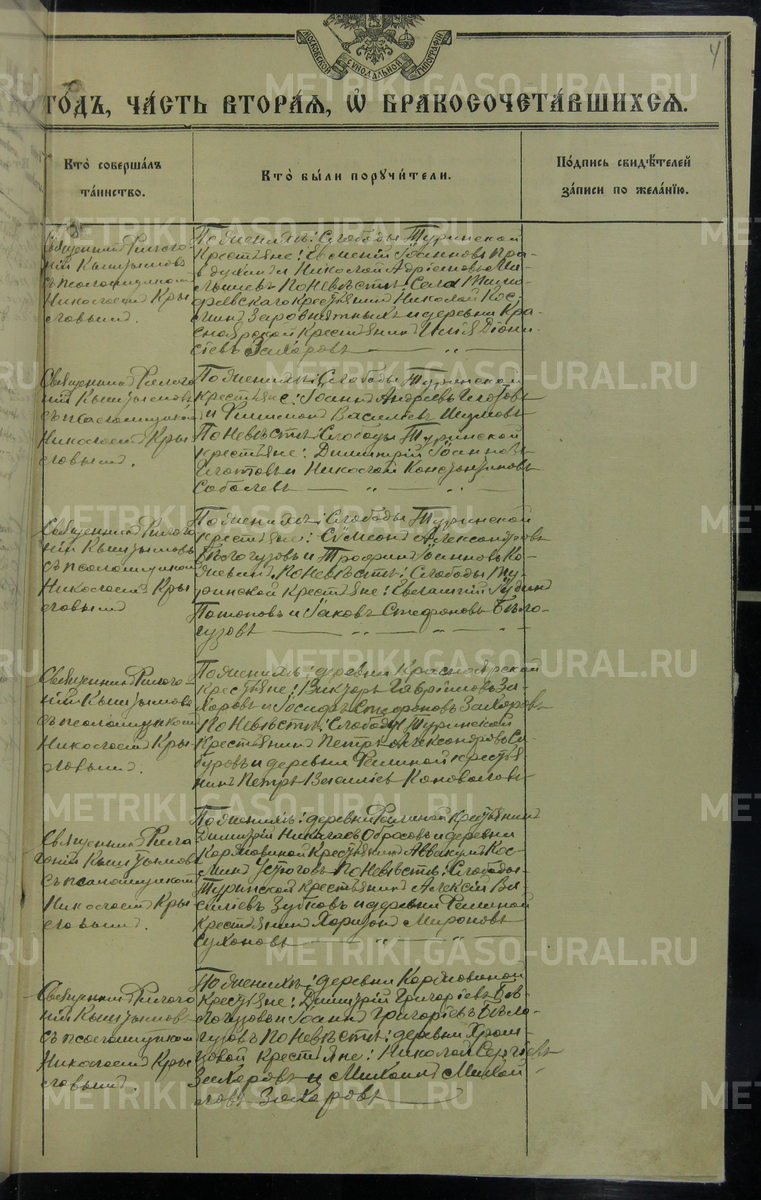 МОСКОВСКОЙ СѴНОДАЛЬНОЙ ТИПОГРАФІИ
4
ГОДЪ, ЧА́СТЬ ВТОРА́Я, Ѽ БРАКОСОЧЕТА́ВШИХСЯ.
Кто̀ соверша́лъ
та́инство.
Кто̀ бы́ли поручи́тели.
По́дпись свидѣ́телей
за́писи по жела́нїю.
Священникъ Филого
ній Кыштымовъ
съ псаломщикомъ
Николаемъ Кры
ловымъ.
По женихѣ: Слободы Туринской
Крестьяне: Евсевій Іоанновъ Пра
и Николай Адріановъ Ма
лышевъ По Невѣстѣ: Села
Крестьянинъ Николай Кос
и деревни Кра
сноярской Крестьянинъ Илія Діони
сіевъ Захаровъ
Священникъ Филого
ній Кыштымовъ
съ псаломщикомъ
Николаемъ Кры
ловымъ.
По женихѣ: Слободы Туринской
крестьяне: Іоаннъ Андреевъ
и Филимонъ Василіевъ
По Невѣстѣ: Слободы Туринской
крестьяне: Димитрій Іоанновъ
и Николай Константиновъ
Соболевъ
Священникъ Филого
ній Кыштымовъ
съ псаломщикомъ
Николаемъ Кры
ловымъ
По женихѣ: Слободы Туринской
крестьяне: Сѵмеонъ Александровъ
Бѣлогузовъ и Трофимъ Іоанновъ Ко
По Невѣстѣ: Слободы Ту
ринской крестьяне:
Потоповъ и Іаковъ Стефановъ Бѣло
гузовъ
Священникъ Филого
ній Кыштымовъ
съ псаломщикомъ
Николаемъ Кры
ловымъ.
По женихѣ: деревни Красноярской
крестьяне: Викторъ Гавріиловъ За
харовъ и Іосифъ Стефановъ Захаровъ
По Невѣстѣ: Слободы Туринской
Крестьянинъ Петръ Александровъ Са
буровъ и деревни Фелиной крестья
нинъ Петръ Василіевъ Коноваловъ
Священникъ Филого
ній Кыштымовъ
съ псаломщикомъ
Николаемъ Кры
ловымъ.
По женихѣ: деревни Фелиной Крестьянинъ
Димитрій Николаевъ и деревни
Кормовиной Крестьянинъ Аввакумъ Кос
По Невѣстѣ: Слободы
Туринской крестьянинъ Алексѣй Ва
силіевъ Зубковъ и деревни Фелиной
Крестьянинъ Мироновъ
Сухановъ
Священникъ Филого
ній Кыштымовъ
съ псаломщикомъ
Николаемъ Кры
ловымъ.
По женихѣ: деревни Кормовиной
Крестьяне: Димитрій Григоріевъ Бѣ
логузовъ и Іоаннъ Григоріевъ Бѣло
гузовъ По Невѣстѣ: деревни
крестьяне: Николай Сергѣевъ
Захаровъ и Михаилъ Михай
ловъ Захаровъ
METRIKI.GASO-URAL.RU